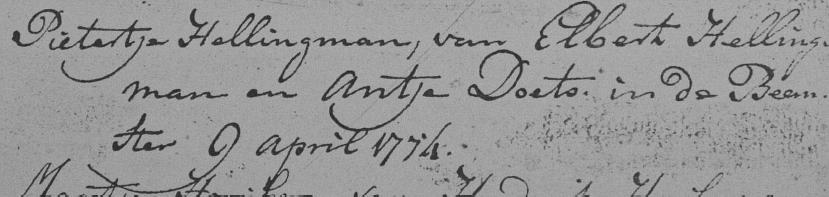 Pietertje Hellingman, van Elbert Helling-
man en Antje Doets. in de Beem-
ster 9 april 1774.